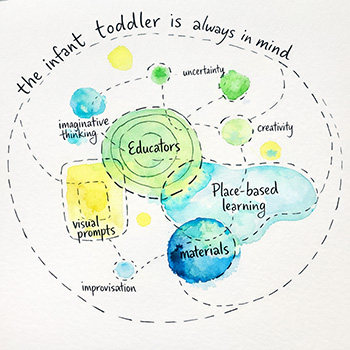 the infant toddler is always in mind
uncertainty
imaginative
thinking
creativity
Educators
Place-based
learning
visual
prompts
materials
improvisation